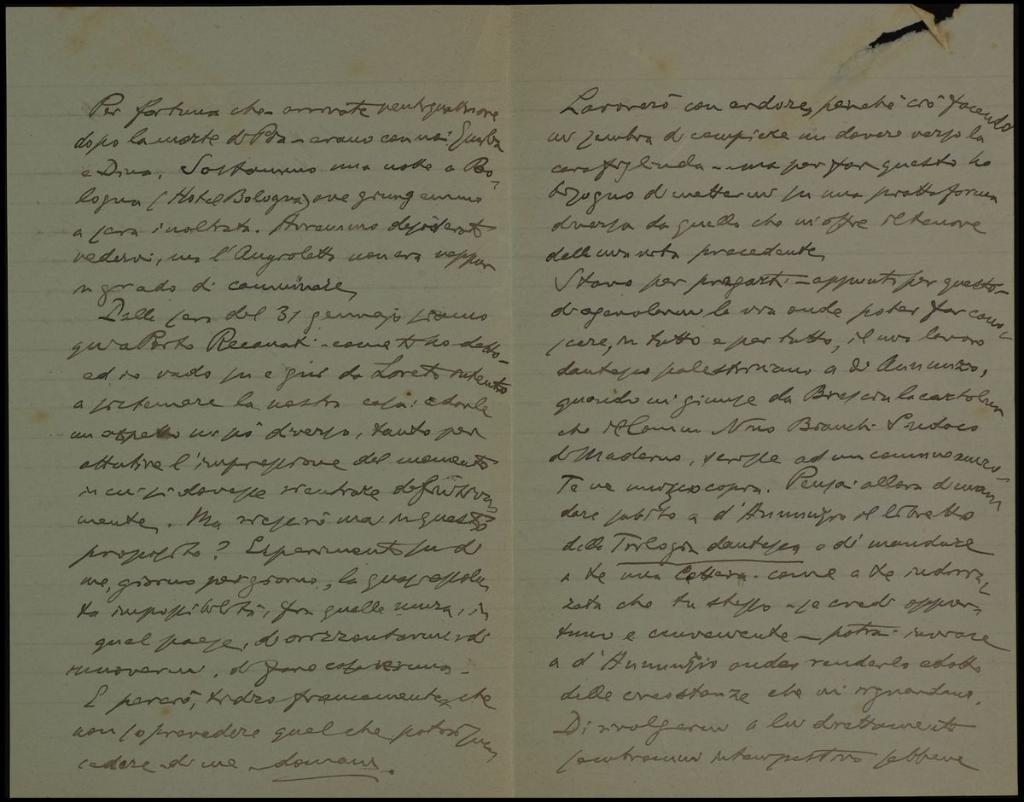 Per fortuna che - arrivate ventiquattr'ore
dopo la morte di Pia - erano con noi
e Dina. Sostammo una notte a Bo-
logna (Hotel Bologna) ove giungemmo
a sera inoltrata. Avremmo desiderato
vedervi, ma l'Angioletta non era neppur
in grado di camminare.
Dalla sera del 31 gennajo siamo
qui a Porto Recanati - come ti ho detto -
ed io vado su e giù da Loreto intento
a sistemare la nostra casa: a darle
un aspetto un pò diverso, tanto per
attutire l'impressione del momento
in cui si dovesse rientrare definitiva-
mente. Ma riescirò mai in questo
proposito? Esperimento su di
me, giorno per giorno, la quasi assolu-
ta impossibilità, fra quelle mura, in
quel paese, di orizzontarmi, di
muovermi, di fare cosa
E perciò, ti dico francamente, che
non so prevedere quel che potrà suc-
cedere di me domani.
Lavorerò con ardore, perchè ciò facendo
mi sembra di compiere un dovere verso la
cara figliuola - ma per far questo ho
bisogno di mettermi su una piattaforma
diversa da quella che m'offre il tenore
della mia vita precedente.
Stavo per pregarti - appunto per questo -
di agevolarmi la via onde poter far cono-
scere, in tutto e per tutto, il mio lavoro
dantesco palestriniano a d'Annunzio,
quando mi giunse da Brescia la cartolina
che il Comm Nino Bianchi Sindaco
di Maderno, scrisse ad un comune amico
Te ne unisco copia. Pensai allora di man-
dare subito a d'Annunzio il libretto
della Trilogia dantesca e di mandare
a te una lettera - come a te indiriz-
zata che tu stesso - se credi oppor-
tuno e conveniente - potrai inviare
a d'Annunzio onde renderlo edotto
delle circostanze che mi riguardano.
Di rivolgermi a lui direttamente
sembravami intempestivo sebbene